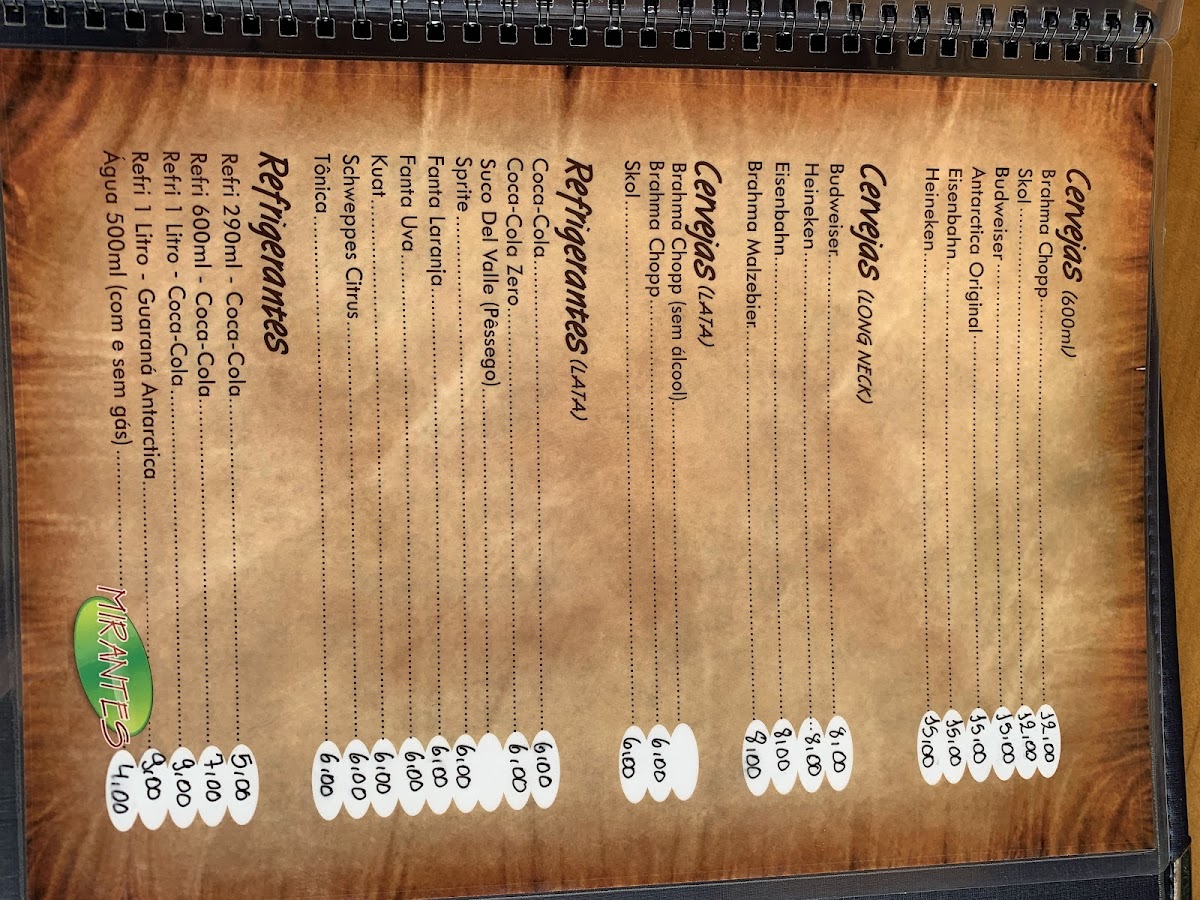 Cervejas (600ml)
Brahma Chopp 12,00
Skol 12,00
Budweiser 15,00
Antarctica Original 15,00
Eisenbahn 15,00
Heineken 15,00
Cervejas (LONG NECK)
Budweiser 8,00
Heineken 8,00
Eisenbahn 8,00
Brahma Malzebier 8,00
Cervejas (LATA)
Brahma Chopp (sem álcool)
Brahma Chopp 6,00
Skol 6,00
Refrigerantes (LATA)
Coca-Cola 6,00
Coca-Cola Zero 6,00
Suco Del Valle (Pêssego)
Sprite 6,00
Fanta Laranja 6,00
Fanta Uva 6,00
Kuat 6,00
Schweppes Citrus 6,00
Tônica 6,00
Refrigerantes
Refri 290ml - Coca-Cola 5,00
Refri 600ml - Coca-Cola 7,00
Refri 1 Litro - Coca-Cola 9,00
Refri 1 Litro - Guaraná Antarctica 9,00
Água 500ml (com e sem gás) 4,00
MIRANTES